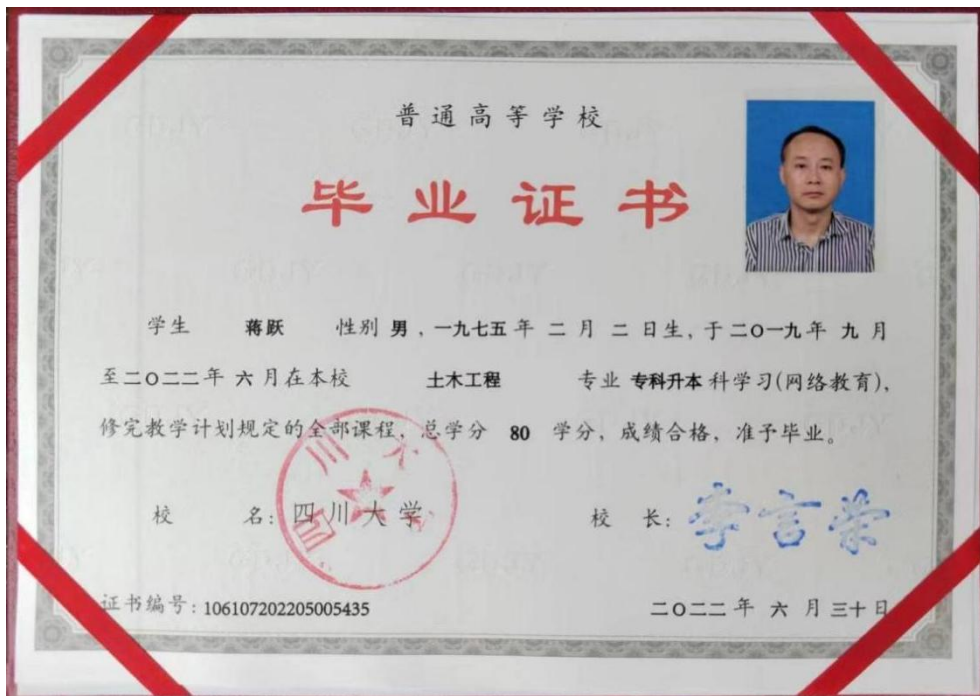 普通高等学校
毕业证书
学生 蒋跃 性别 男，一九七五年 二月 二日生，于二〇一九年 九月
至二〇二二年 六月在本校 土木工程 专业 专科升本 科学习(网络教育)，
修完教学计划规定的全部课程，总学分 80 学分，成绩合格，准予毕业。
四川大学
校 名：四川大学 校 长：李言荣
证书编号：106107202205005435 二〇二二年 六月 三十日